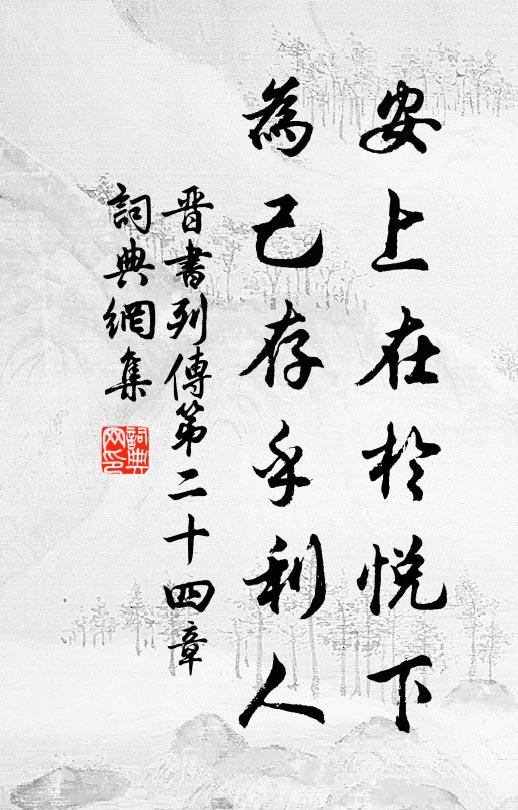 安上在於悦下
為己存乎利人
晋書列傳第二十四章
詞典網集
詞典网印